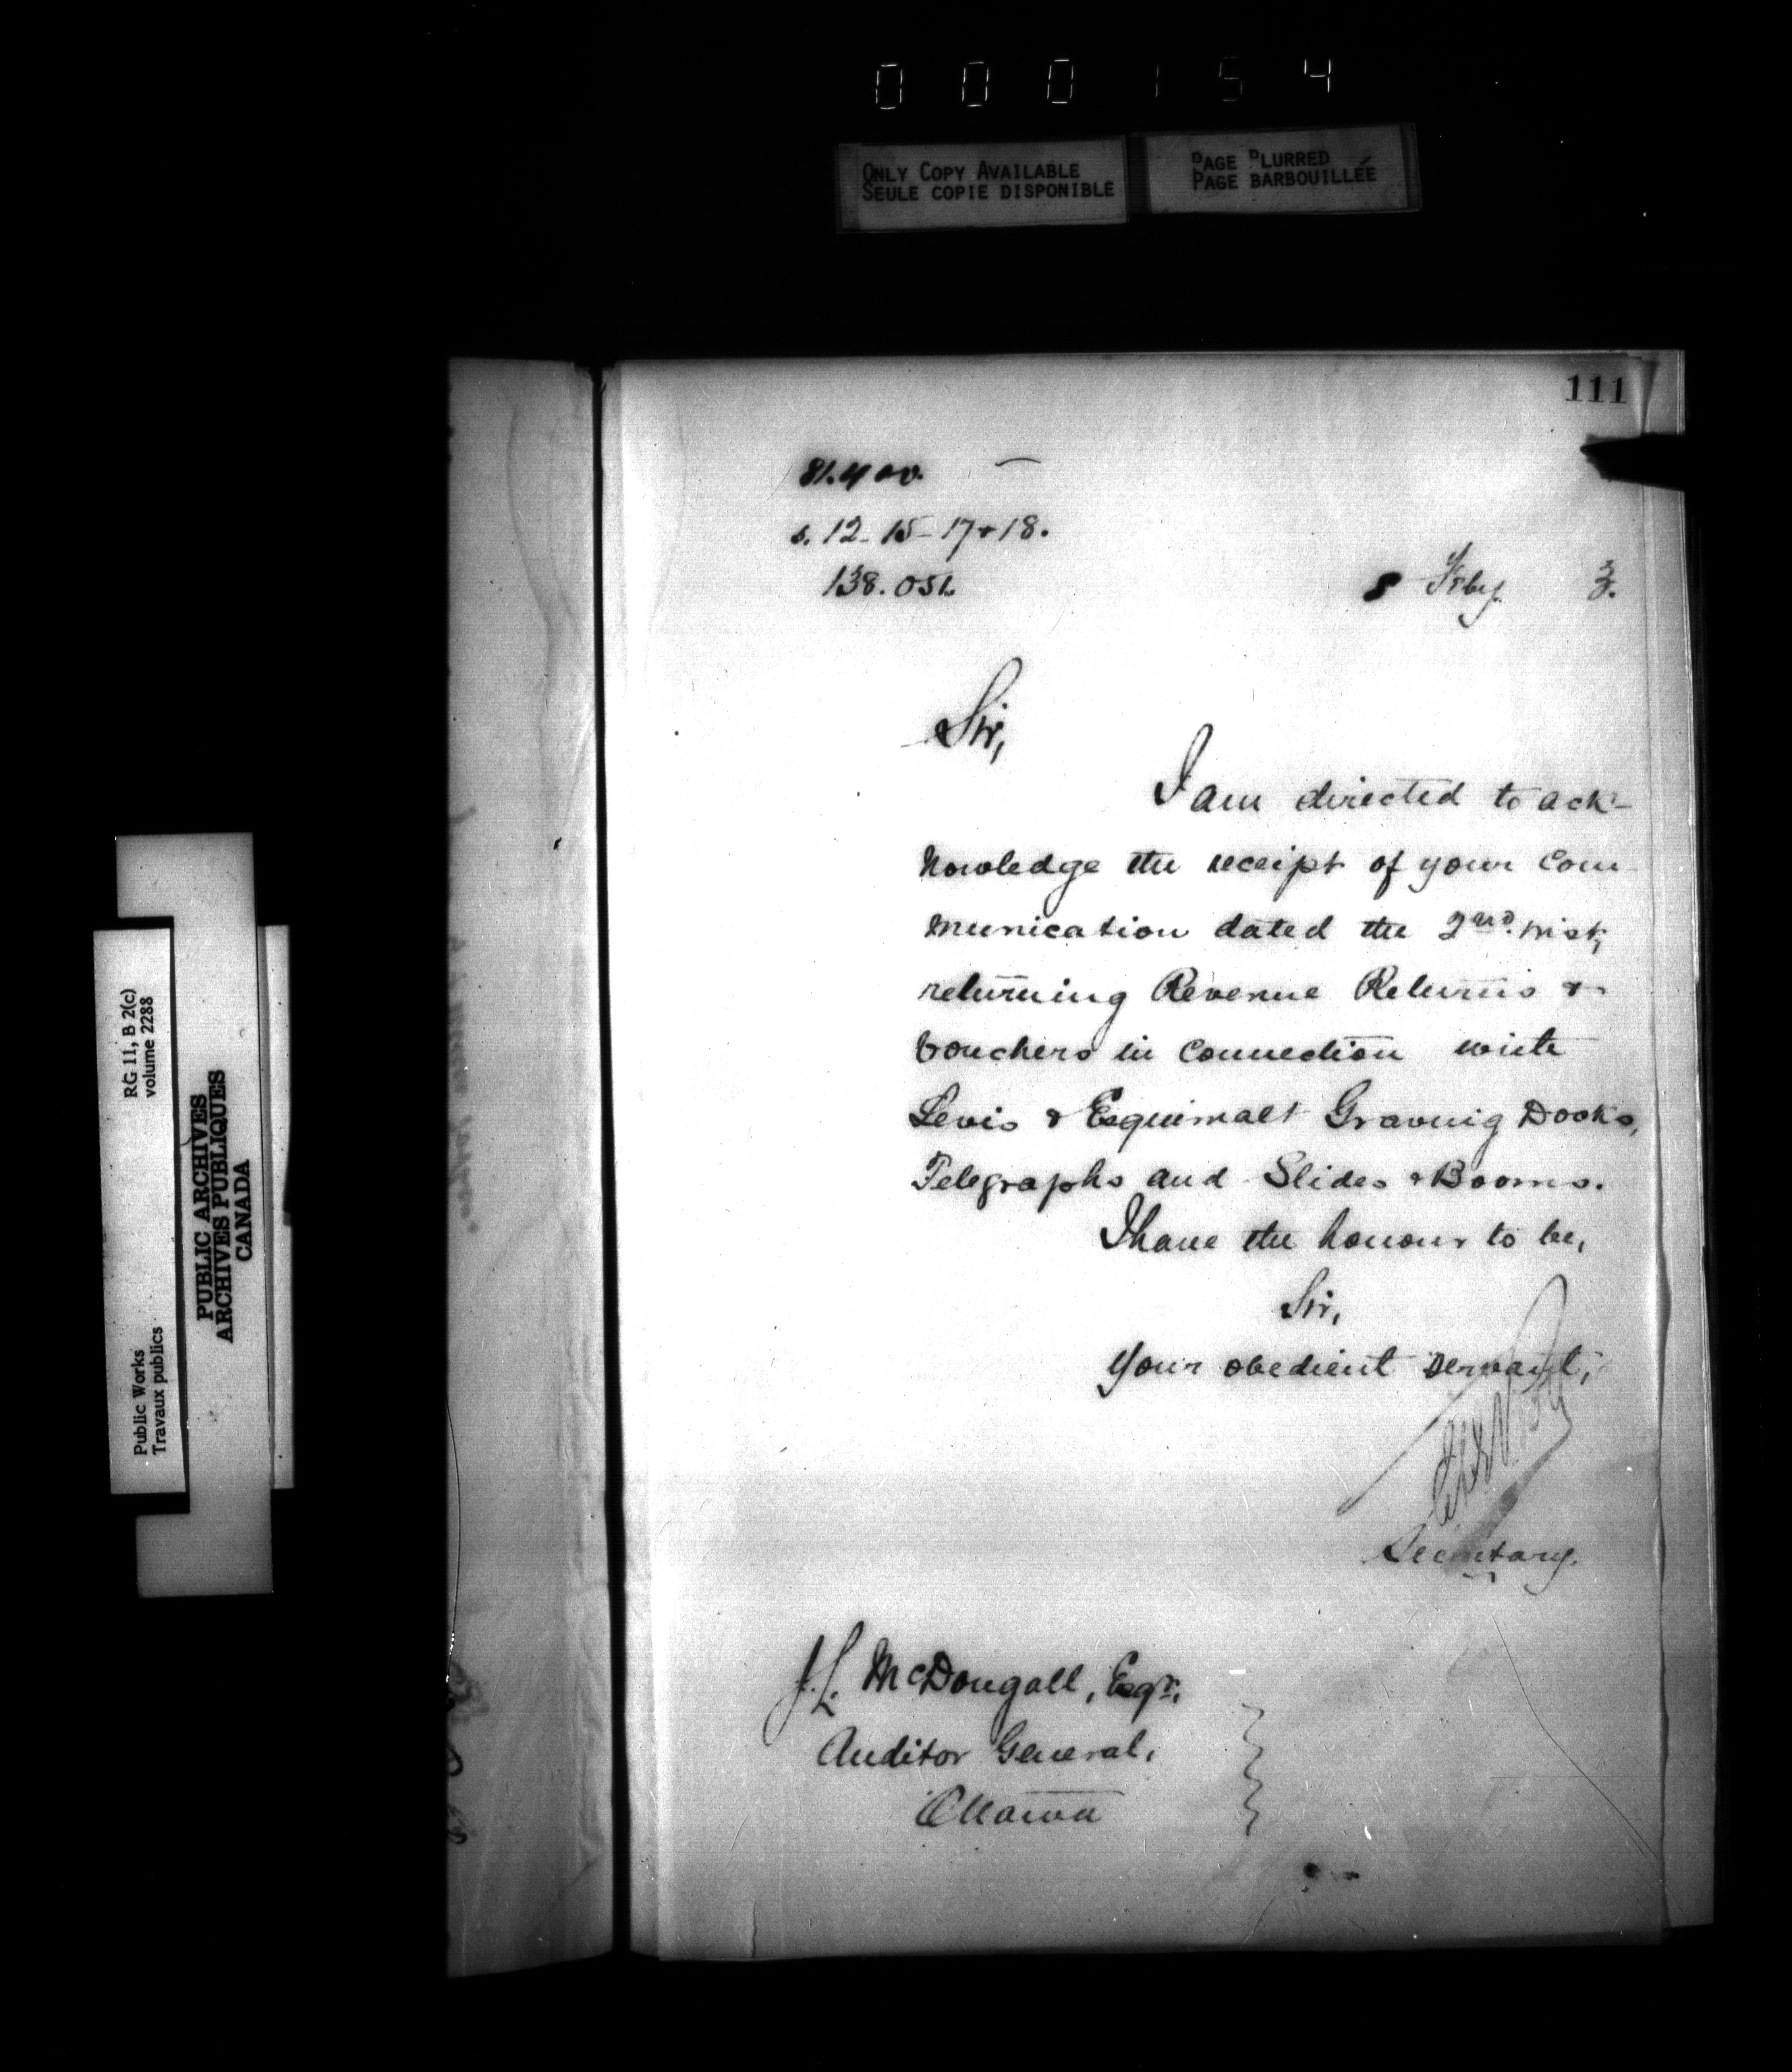 000154
ONLY COPY AVAILABLE
SEULE COPIE DISPONIBLE
PAGE BLURRED
PAGE BARBOUILLÉE
111
s. 12-15-17 & 18.
138.051.
8 Feby. 3.
Sir,
I am directed to ack-
nowledge the receipt of your Com
munication dated the 2nd. inst,
returning Revenue Returns &
Vouchers in Connection with
Levis & Esquimalt Graving Docks,
Telegraphs and Slides & Booms.
I have the honour to be,
Sir,
Your obedient Servant,
Secretary.
J.L. McDougall, Esqr.
Auditor General,
Ottawa
RG 11, B 2(c)
volume 2288
Public Works
Travaux publics
PUBLIC ARCHIVES
ARCHIVES PUBLIQUES
CANADA